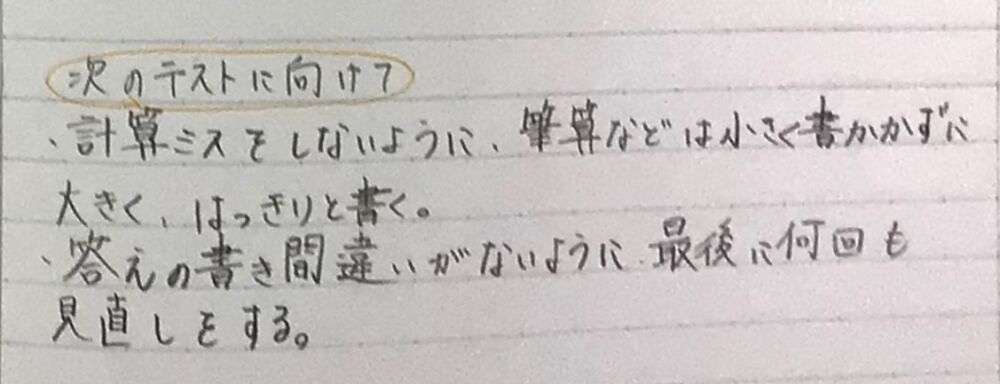 次のテストに向けて
・計算ミスをしないように、筆算などは小さく書かかずに
大きく、はっきりと書く。
・答えの書き間違いがないように、最後に何回も
見直しをする。